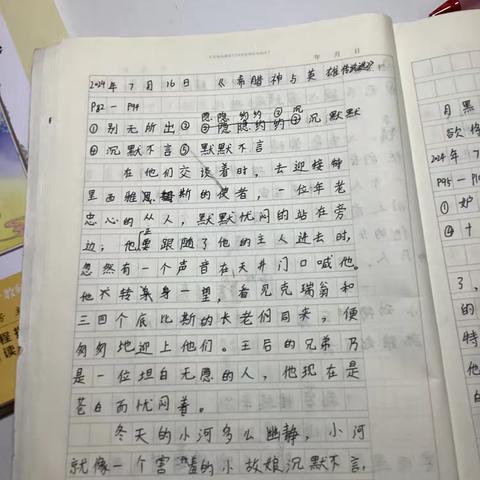 年 月 日
2024年7月16日 《希腊神与英雄传说》
P82一P94
隐隐约约 ③沉
①别无所出②隐隐约约③沉默默
④沉默不言⑤默默不言
在他们交谈着时，去迎接特
里西雅斯的使者，一位年老
忠心的从人，默默忧闷的站在旁
边；他正要跟随了他的主人进去时，
忽然有一个声音在天井门口喊他。
他转身一望，看见克瑞翁和
三四个底比斯的长老们回来，便
匆匆地迎上他们。王后的兄弟乃
是一位坦白无愿的人，他现在是
苍白而忧闷着。
冬天的小河多么幽静，小河
就像一个害羞的小姑娘沉默不言，
月黑
欲
2024年7
P95一P10
①妒
④十
了，
的
特
他
在